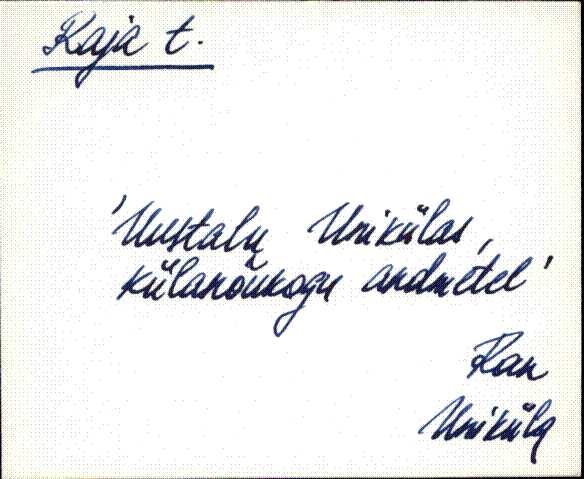 Raja t.
'Uustalu Unikülas,
külanõukogu andmetel'
Ran
Uniküla